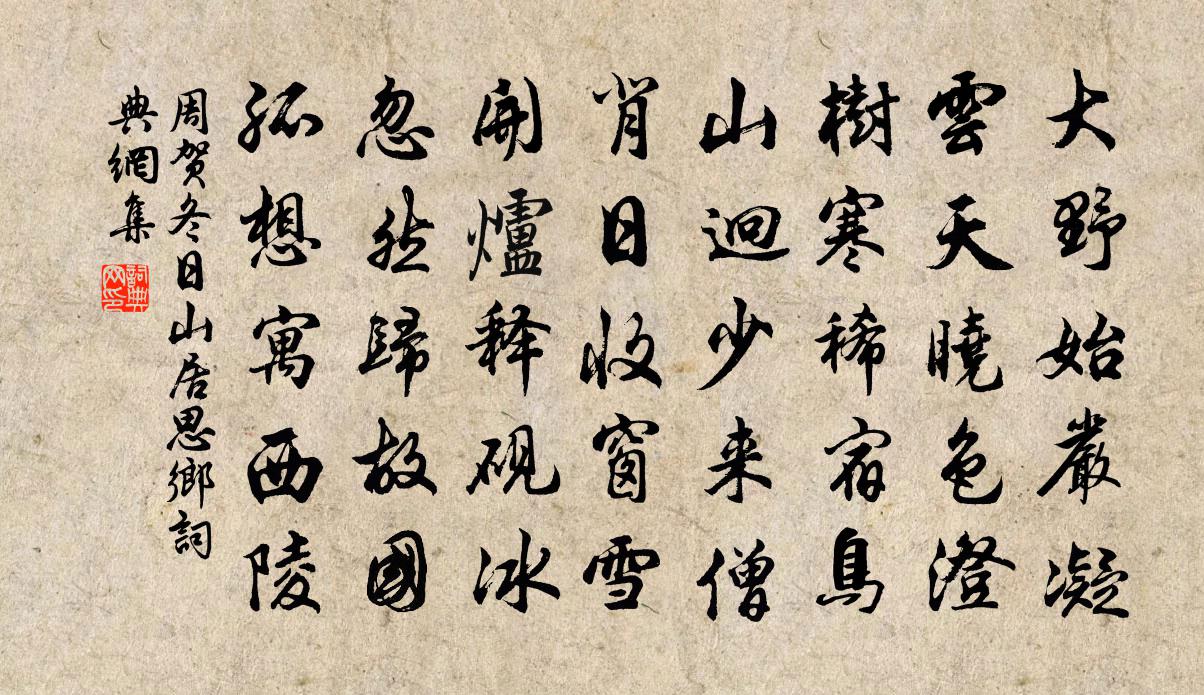 大野始嚴凝
雲天曉色澄
樹寒稀宿鳥
山迥少来僧
背日收窗雪
開爐释硯冰
忽然歸故國
孤想寓西陵
周贺冬日山居思鄉詞
典網集
詞典
网印